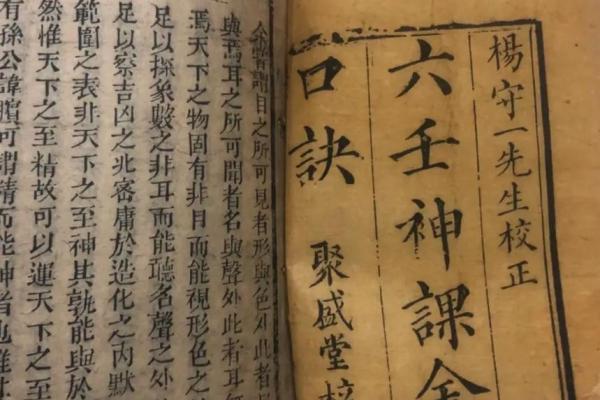 楊守一先生校正
六壬神課金
口訣
聚盛堂
余嘗謂目之所可見者形與色外此者
與焉耳之所可聞者名與聲外此者耳
焉天下之物固有非目而能視形色之
足以探象數之非耳而能聽名聲之外
足以察吉凶之兆密庸於造化之內默
範圍之表非天下之至神其孰能與於
然惟天下之至精故可以運天下之至
有孫公諱臏可謂精而能神者也